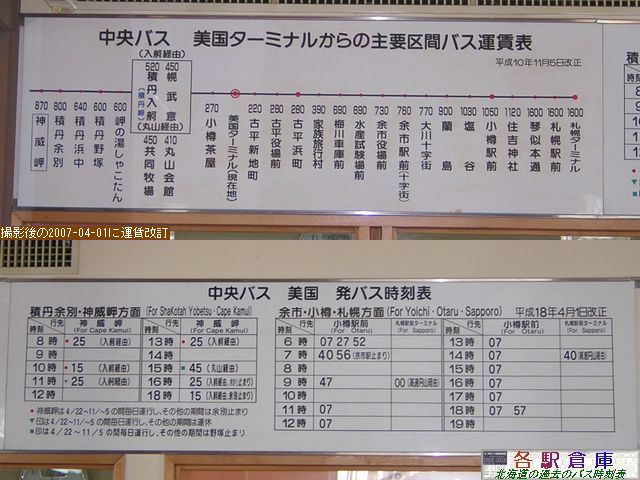 中央バス 美国ターミナルからの主要区間バス運賃表
平成10年11月5日改正
(入舸経由)
520 積丹入舸 (積丹岬)
450 幌武意
(丸山経由)
450 共同牧場
410 丸山会館
670 神威岬
800 積丹余別
640 積丹浜中
600 積丹野塚
600 岬の湯しゃこたん
270 小樽茶屋
美国ターミナル(現在地)
220 古平新地町
280 古平役場前
280 古平浜町
390 家族旅行村
690 梅川車庫前
690 水産試験場前
730 余市役場前
760 余市駅前(十字街)
770 大川十字街
900 蘭島
1030 塩谷
1050 小樽駅前
1120 住吉神社
1600 琴似本通
1600 札幌駅前
1600 札幌ターミナル
撮影後の2007-04-01に運賃改訂
中央バス 美国 発バス時刻表
積丹余別・神威岬方面 (For ShaKotah Yobetsu・Cape Kamui)
時刻 行先 神威岬 (For Cape Kamui) 時刻 行先 神威岬 (For Cape Kamui)
8時 25 (入舸経由) 13時 25 (入舸経由)
9時 14時
10時 15 (入舸経由) 15時 45 (丸山経由)
11時 25 (入舸経由) 16時 25
12時 18時 15
● 神威岬は4/22~11/5の間毎日運行し、その他の期間は余別止まり
▼印は4/22~11/5の間毎日運行し、その他の期間は運休
■印は4/22~11/5の間毎日運行し、その他の期間は野塚止まり
余市・小樽・札幌方面 (For Yoichi・Otaru・Sapporo) 平成18年4月1日改正
時刻 行先 小樽駅前 (For Otaru) 札幌駅前ターミナル (For Sapporo) 時刻 行先 小樽駅前 (For Otaru) 札幌駅前ターミナル (For Sapporo)
6時 07 27 52 13時 07
7時 40 56 (余市駅止まり) 14時 07 40 (高速円山経由)
8時 15時 07
9時 47 00 (高速円山経由) 16時 07
10時 17時 07
11時 07 18時 07 57
12時 07 19時
各駅倉庫
北海道の過去のバス時刻表